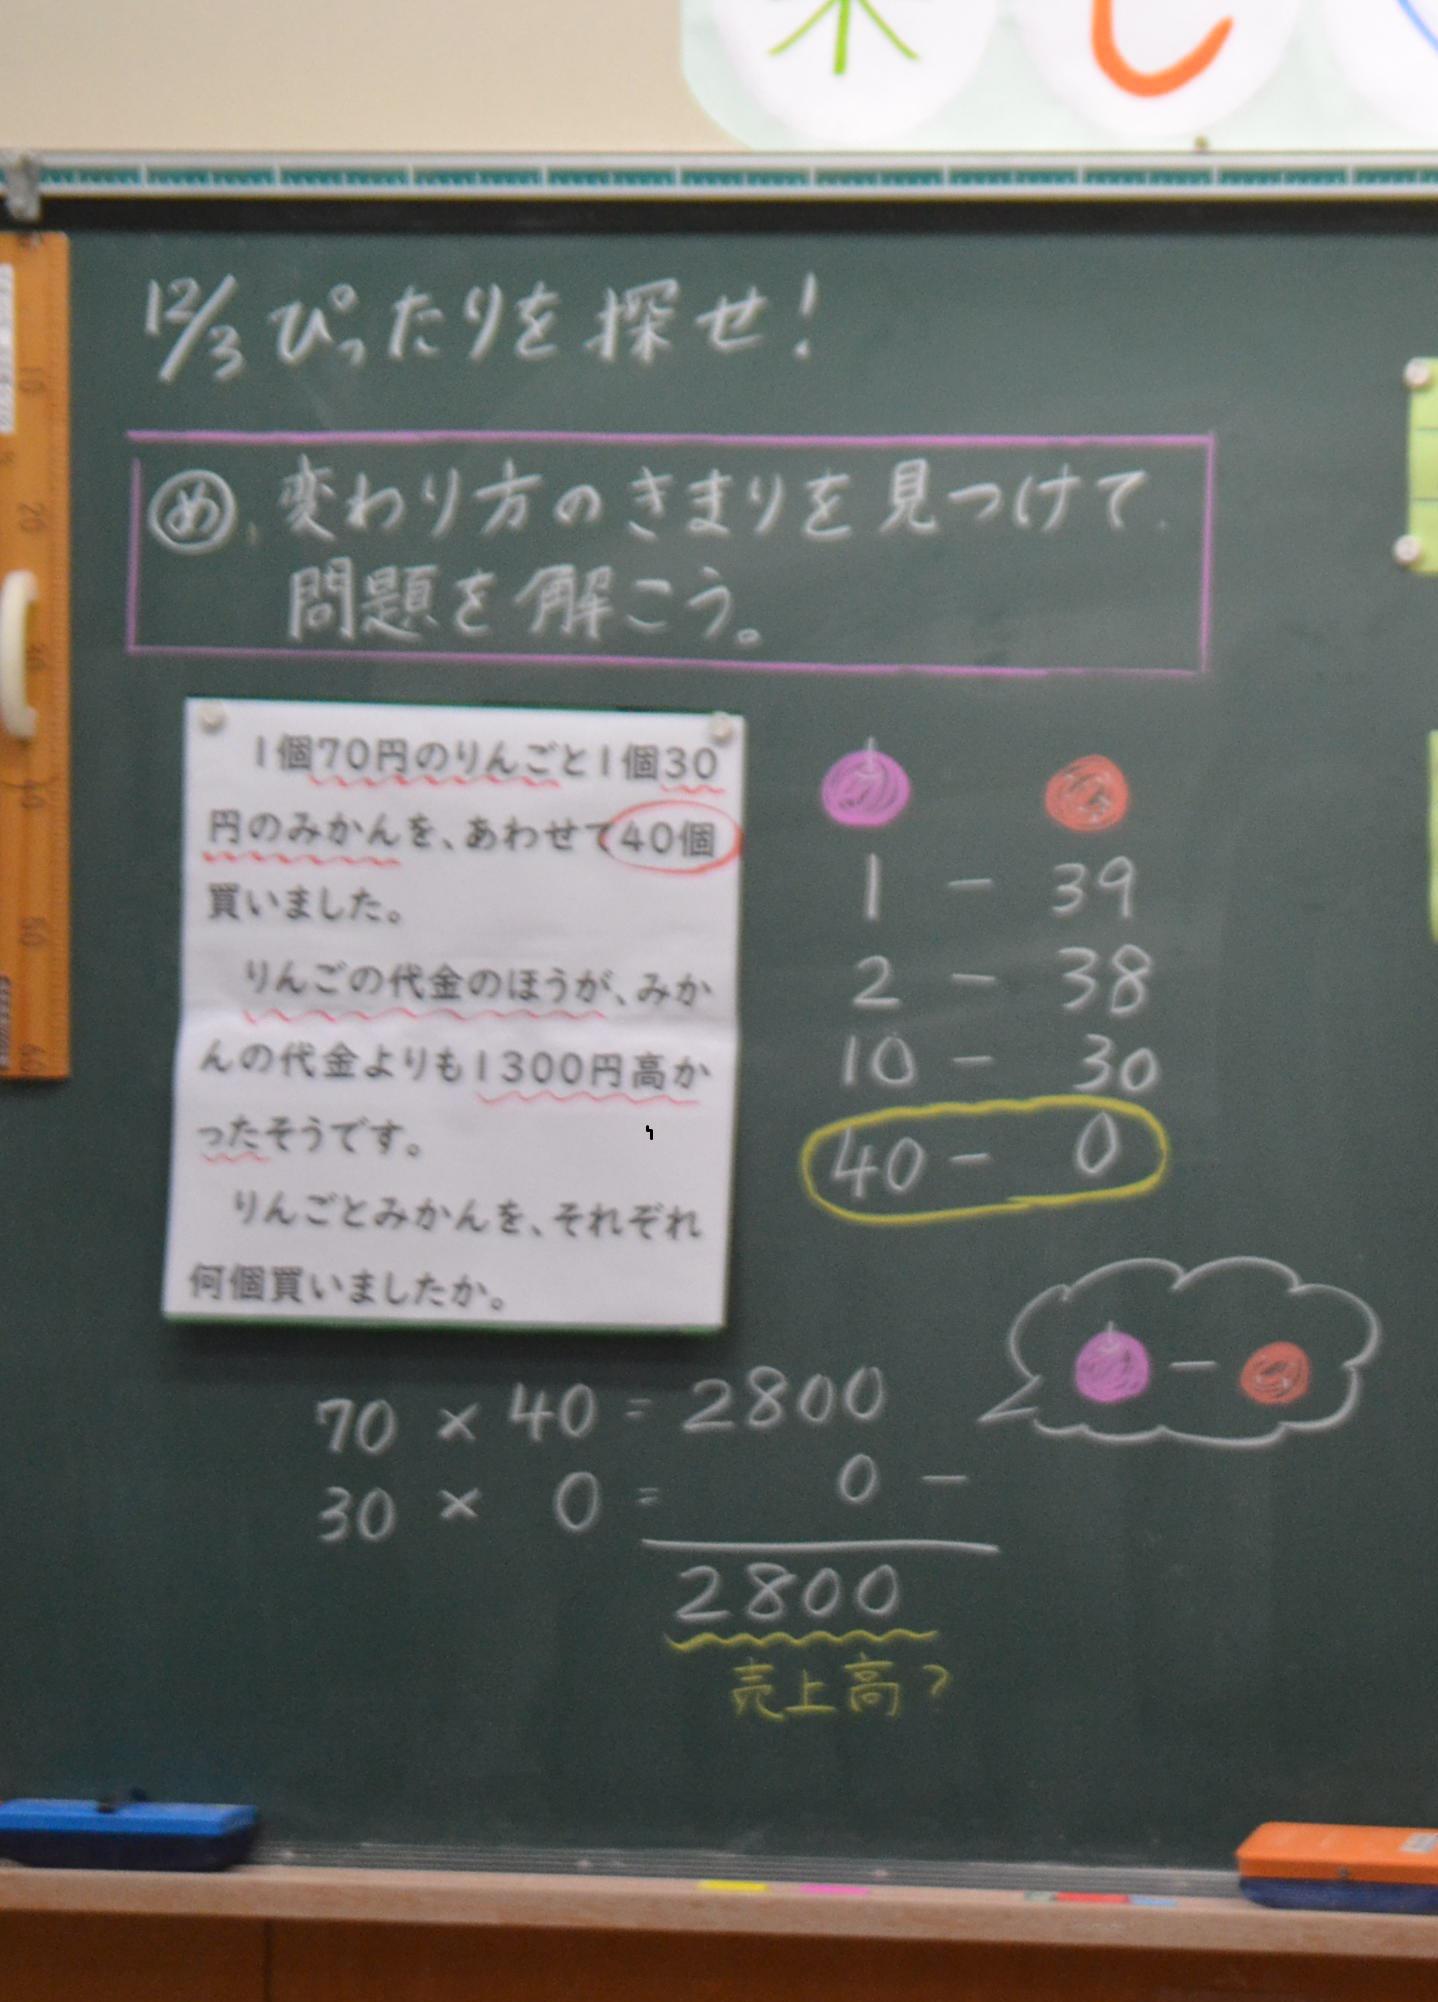 楽し
12/3 ぴったりを探せ!
め 変わり方のきまりを見つけて
問題を解こう。
1個70円のりんごと1個30
円のみかんを、あわせて40個
買いました。
りんごの代金のほうが、みか
んの代金よりも1300円高か
ったそうです。
りんごとみかんを、それぞれ
何個買いましたか。
1 - 39
2 - 38
10 - 30
40 - 0
-
70 × 40 = 2800
30 × 0 = 0 -
2800
売上高?
10
20
30
40
50
60